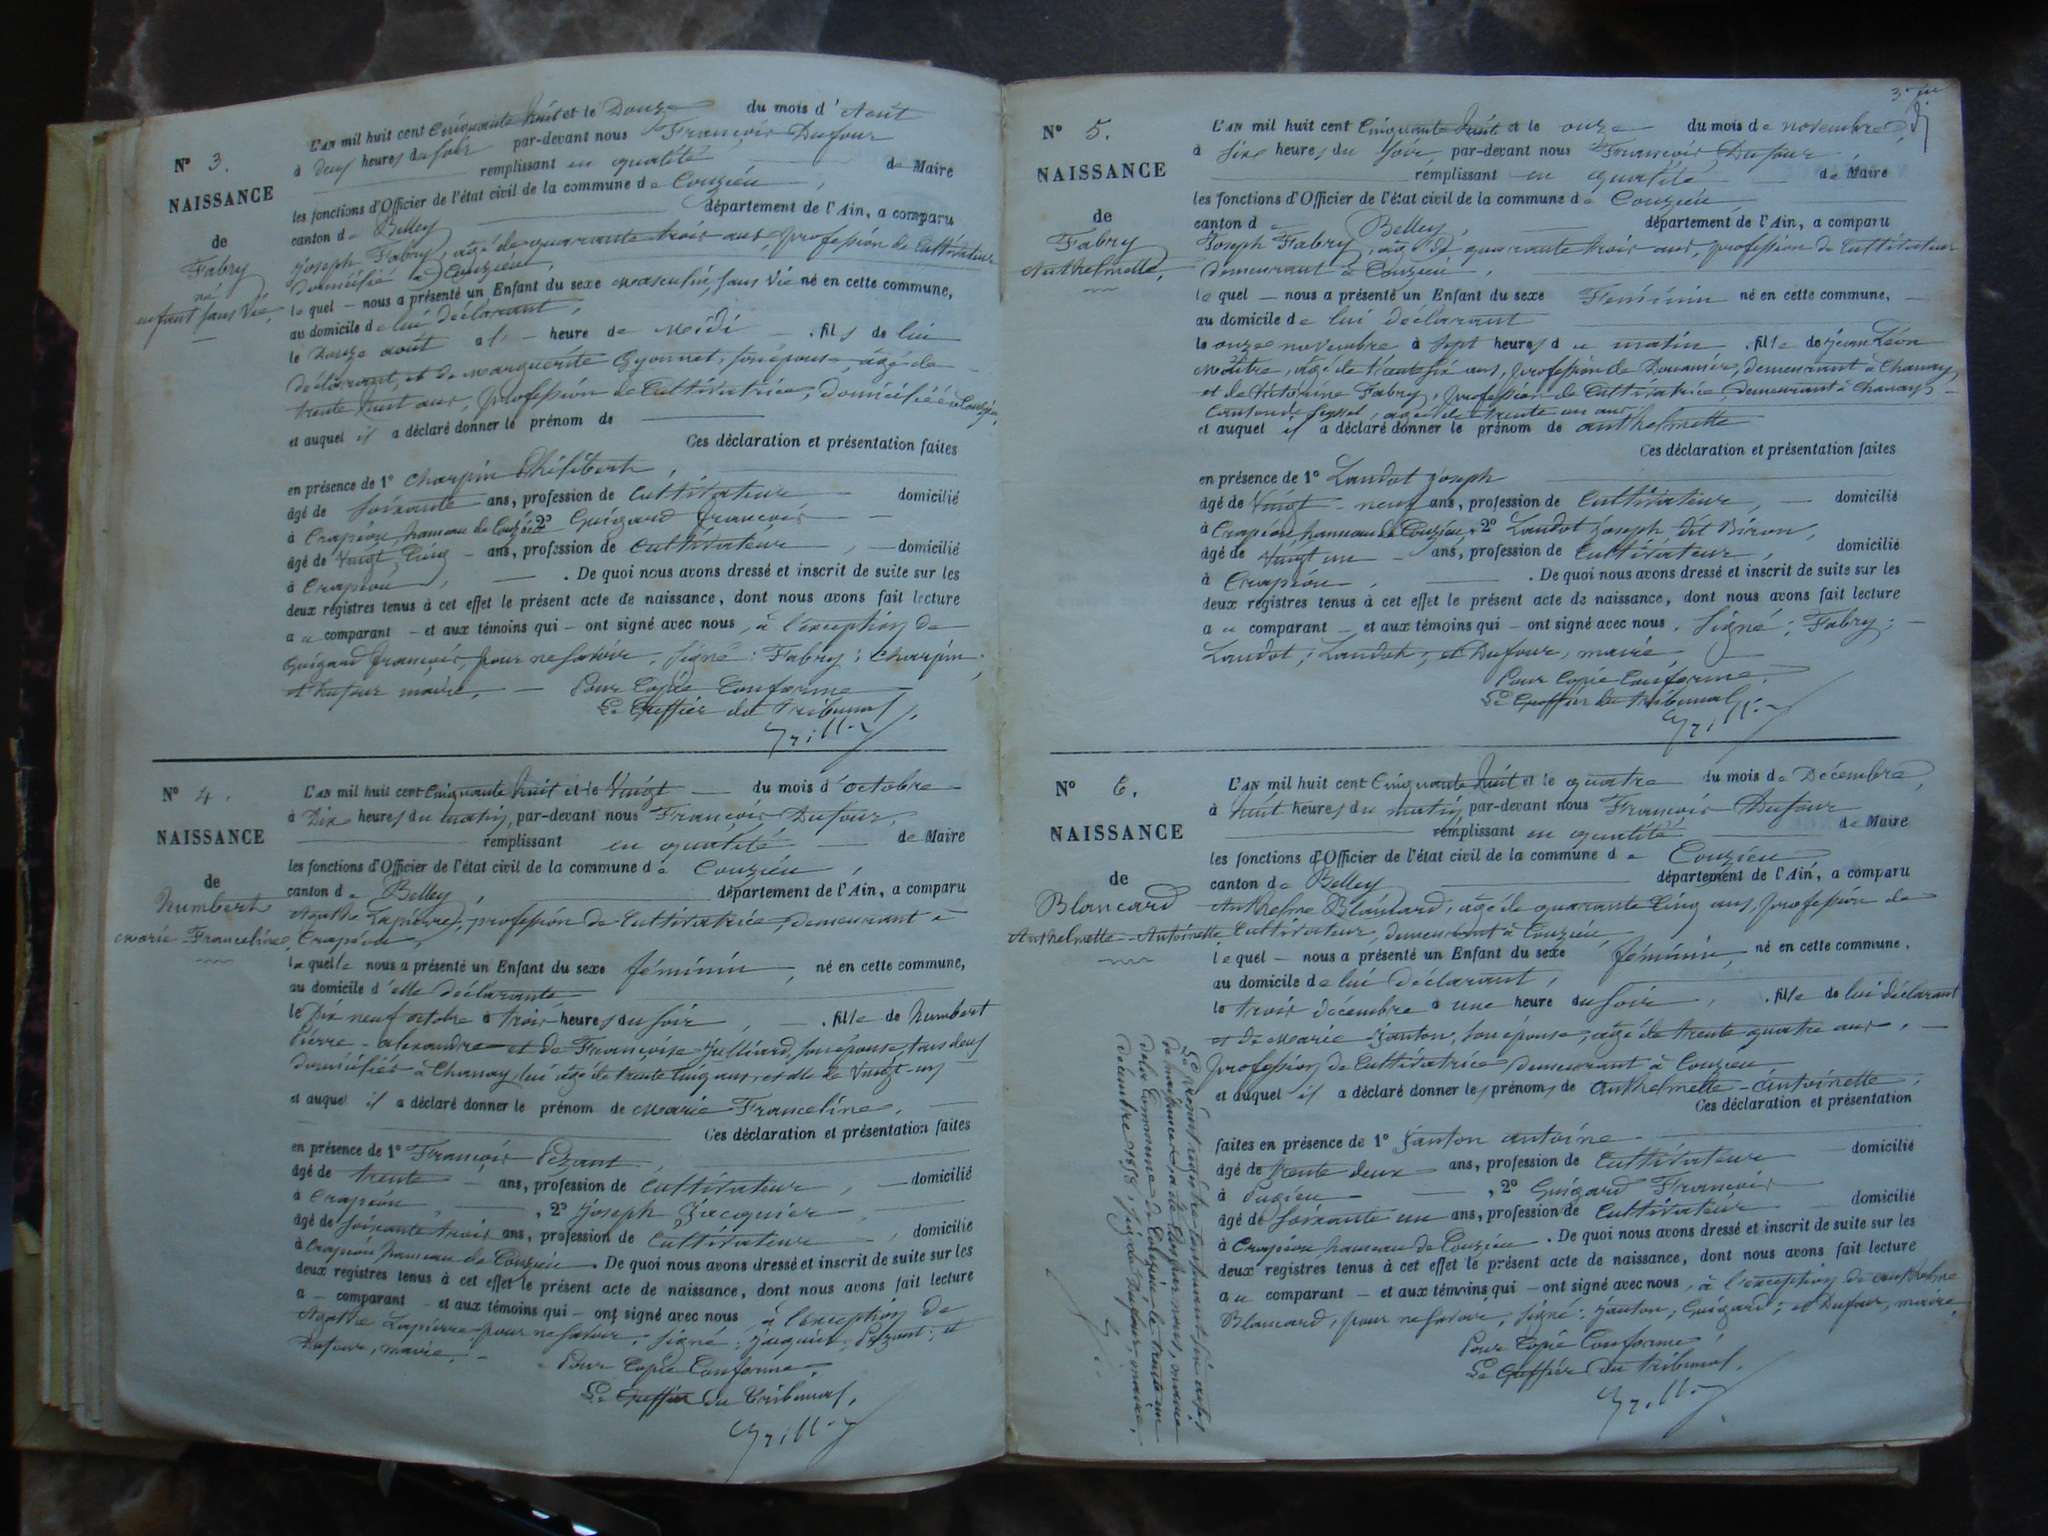 N° 3.
NAISSANCE
de
Fabry
né
enfant sans vie,
L'AN mil huit cent Cinquante huit et le Douze du mois d'Août
à deux heures du soir par-devant nous François Dufour
remplissant en qualité de Maire
les fonctions d'Officier de l'état civil de la commune de Couzieu,
canton de Belley département de l'Ain, a comparu
Joseph Fabry, âgé de quarante trois ans, profession de Cultivateur
domicilié à Couzieu,
lequel nous a présenté un Enfant du sexe masculin, sans vie né en cette commune,
au domicile de lui déclarant,
le Douze août à l' heure de Midi . fils de lui
déclarant, et de Marguerite Gyonnet, son épouse, âgée de
trente huit ans, profession de Cultivatrice, domiciliée à Couzieu,
et auquel il a déclaré donner le prénom de
Ces déclaration et présentation faites
en présence de 1° Charpin Philibert,
âgé de soixante ans, profession de Cultivateur domicilié
à Crapéou, hameau de Couzieu 2° Guigard François
âgé de Vingt Cinq ans, profession de Cultivateur, domicilié
à Crapéou, . De quoi nous avons dressé et inscrit de suite sur les
deux registres tenus à cet effet le présent acte de naissance, dont nous avons fait lecture
au comparant et aux témoins qui ont signé avec nous, à l'exception de
Guigard François, pour ne savoir, signé : Fabry ; Charpin,
et Dufour maire. Pour Copie Conforme
Le Greffier du Tribunal,
N° 4.
NAISSANCE
de
humbert
marie-Franceline,
L'AN mil huit cent Cinquante huit et le Vingt du mois d'octobre
à Dix heures du matin, par-devant nous François Dufour,
remplissant en qualité de Maire
les fonctions d'Officier de l'état civil de la commune de Couzieu,
canton de Belley, département de l'Ain, a comparu
Agathe Lapierre, profession de Cultivatrice, demeurant à
Crapéou,
laquelle nous a présenté un Enfant du sexe féminin, né en cette commune,
au domicile d'elle déclarante
le Dix neuf octobre à trois heures du soir, . fille de humbert
Pierre-alexandre et de Françoise Julliard, son épouse, tous deux
domiciliés à Chanay, lui âgé de trente cinq ans, et elle de Vingt-un
et auquel il a déclaré donner le prénom de Marie Franceline,
Ces déclaration et présentation faites
en présence de 1° François Pezant,
âgé de trente ans, profession de Cultivateur, domicilié
à Crapéou, , 2° Joseph Jacquier,
âgé de soixante trois ans, profession de Cultivateur, domicilié
à Crapéou, hameau de Couzieu. De quoi nous avons dressé et inscrit de suite sur les
deux registres tenus à cet effet le présent acte de naissance, dont nous avons fait lecture
a comparant et aux témoins qui ont signé avec nous à l'exception de
Agathe Lapierre pour ne savoir, signé : Jacquier, Pezant ; et
Dufour, maire. Pour Copie Conforme
Le Greffier du Tribunal,
3.me
N° 5.
NAISSANCE
de
Fabry
Anthelmette,
L'AN mil huit cent Cinquante huit et le onze du mois de novembre,
à Six heures du Soir, par-devant nous François Dufour,
remplissant en qualité de Maire
les fonctions d'Officier de l'état civil de la commune de Couzieu,
canton de Belley, département de l'Ain, a comparu
Joseph Fabry, âgé de quarante trois ans, profession de Cultivateur
demeurant à Couzieu,
lequel nous a présenté un Enfant du sexe Féminin né en cette commune,
au domicile de lui déclarant
le onze novembre à Sept heures du matin . fille de Jean Léon
âgé de trente six ans, profession de Douanier, demeurant à Chanay,
et de Victorine Fabry, profession de Cultivatrice, demeurant à Chanay,
Canton de Seyssel, âgée de trente un ans
et auquel il a déclaré donner le prénom de anthelmette
Ces déclaration et présentation faites
en présence de 1° Laudot Joseph
âgé de Vingt-neuf ans, profession de Cultivateur, domicilié
à Crapéou hameau de Couzieu, 2° Laudot Joseph, dit Biron,
âgé de Vingt un ans, profession de Cultivateur, domicilié
à Crapéou, . De quoi nous avons dressé et inscrit de suite sur les
deux registres tenus à cet effet le présent acte de naissance, dont nous avons fait lecture
au comparant et aux témoins qui ont signé avec nous. Signé : Fabry ;
Laudot ; Laudot ; et Dufour, maire,
Pour Copie Conforme,
Le Greffier du Tribunal,
N° 6.
NAISSANCE
de
Blancard
Anthelmette-Antoinette
L'AN mil huit cent Cinquante huit et le quatre du mois de Décembre,
à huit heures du matin, par-devant nous François Dufour
remplissant en qualité de Maire
les fonctions d'Officier de l'état civil de la commune de Couzieu
canton de Belley département de l'Ain, a comparu
Anthelme Blancard, âgé de quarante Cinq ans, profession de
Cultivateur, demeurant à Couzieu,
lequel nous a présenté un Enfant du sexe féminin, né en cette commune.
au domicile de lui déclarant,
le trois décembre à une heure du soir, . fille de lui déclarant
et de Marie Janton, son épouse, âgée de trente quatre ans,
profession de Cultivatrice demeurant à Couzieu
et auquel il a déclaré donner les prénoms de anthelmette-antoinette,
Ces déclaration et présentation
faites en présence de 1° Janton antoine
âgé de trente deux ans, profession de Cultivateur domicilié
à Pugieu , 2° Guigard François
âgé de soixante un ans, profession de Cultivateur domicilié
à Crapéou hameau de Couzieu. De quoi nous avons dressé et inscrit de suite sur les
deux registres tenus à cet effet le présent acte de naissance, dont nous avons fait lecture
au comparant et aux témoins qui ont signé avec nous, à l'exception de anthelme
Blancard, pour ne savoir, signé : Janton ; Guigard ; et Dufour, maire.
Pour Copie Conforme,
Le Greffier du Tribunal,
Le présent registre contenant six actes
de naissances, a été clos par nous, maire
de la Commune de Couzieu le trente un
décembre 1858, signé Dufour, maire.